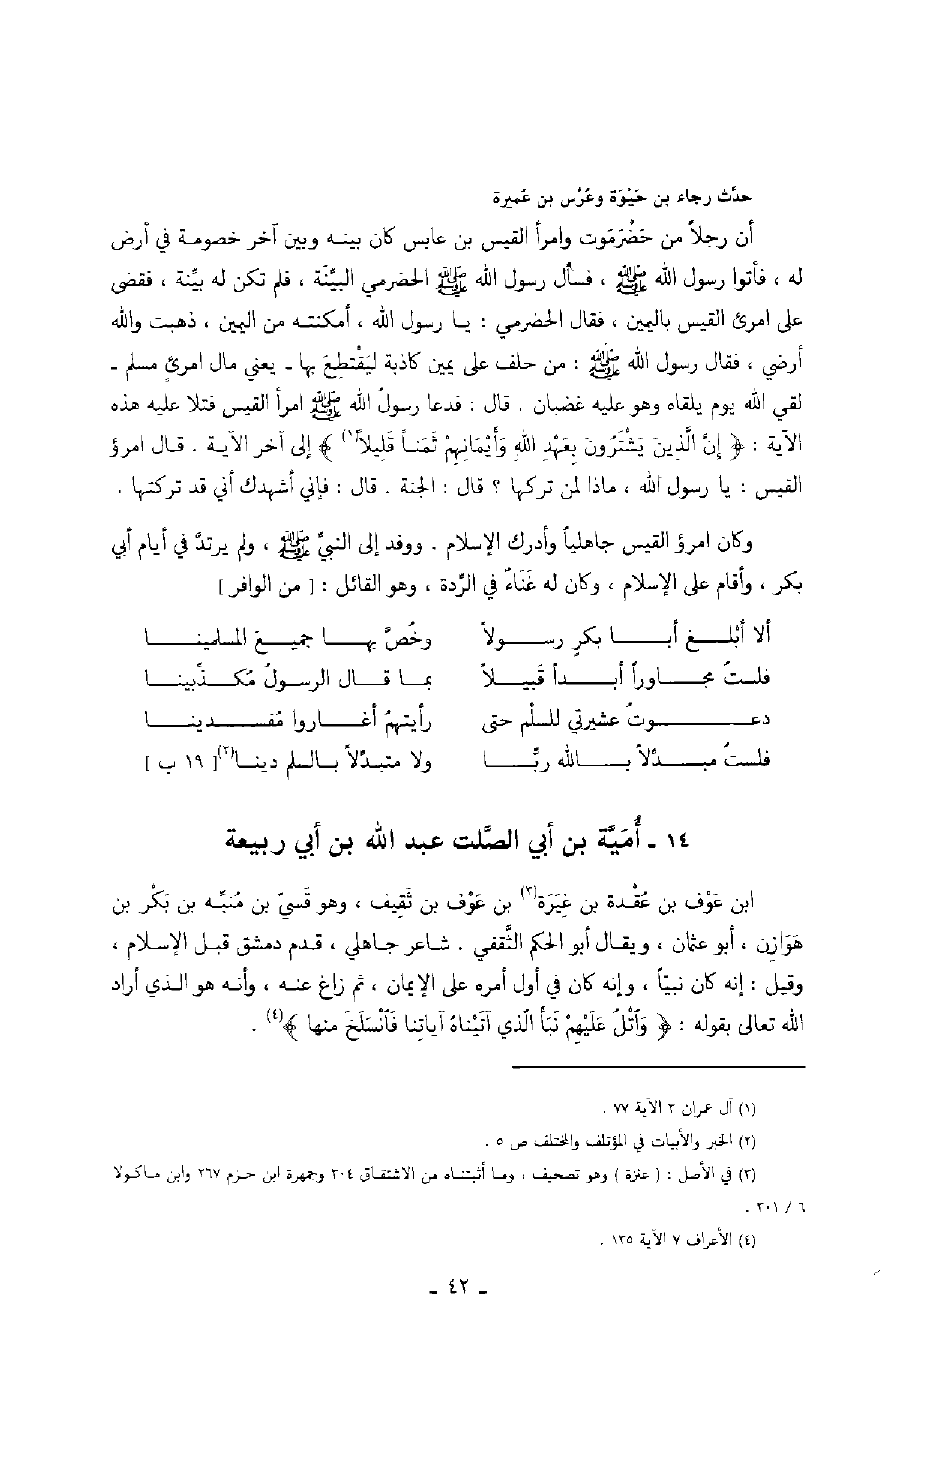 حدَّث رجاء بن حَيْوَة وعُرْس بن عَميرة
أن رجلاً من حَضْرَمَوت وامرأ القيس بن عابس كان بينه وبين آخر خصومة في أرض
له ، فأتوا رسول الله ﷺ ، فسأل رسول الله ﷺ الحضرمي البيِّنَة ، فلم تكن له بيِّنة ، فقضى
على امرئ القيس باليمين ، فقال الحضرمي : يا رسول الله ، أمكنته من اليمين ، ذهبت والله
أرضي ، فقال رسول الله ﷺ : من حلف على يمين كاذبة ليَقْتطِعَ بها - يعني مال امرئٍ مسلم -
لقي الله يوم يلقاه وهو عليه غضبان . قال : فدعا رسولُ الله ﷺ امرأ القيس فتلا عليه هذه
الآية : ﴿ إنَّ الَّذِينَ يَشْتَرُونَ بِعَهْدِ اللهِ وَأَيْمَانِهِمْ ثَمَناً قَلِيلاً(١) ﴾ إلى آخر الآية . قال امرؤ
القيس : يا رسول الله ، ماذا لمن تركها ؟ قال : الجنة . قال : فإني أشهدك أني قد تركتها .
وكان امرؤ القيس جاهلياً وأدرك الإسلام . ووفد إلى النبيّ ﷺ ، ولم يرتدَّ في أيام أبي
بكر ، وأقام على الإسلام ، وكان له غَنَاءٌ في الرِّدة ، وهو القائل : [ من الوافر ]
ألا أبْلغ أبا بكرٍ رسولاً وخُصَّ بها جميعَ المسلمينا
فلستُ مجاوراً أبداً قَبيلاً بما قال الرسولُ مُكذِّبينا
دعوتُ عشيرتي للسلم حتى رأيتهمُ أغاروا مُفسدينا
فلستُ مبدّلاً بالله ربَّا ولا متبدّلاً بالسلم دينا(٢) [ ١٩ ب ]
١٤ - أُمَيَّة بن أبي الصَّلت عبد الله بن أبي ربيعة
ابن عَوْف بن عُقْدة بن غِيَرَة(٣) بن عَوْف بن ثَقِيف ، وهو قَسيّ بن مُنَبِّه بن بَكْر بن
هَوَازِن ، أبو عثمان ، ويقال أبو الحكم الثَّقفي . شاعر جاهلي ، قدم دمشق قبل الإسلام ،
وقيل : إنه كان نبيّاً ، وإنه كان في أول أمره على الإيمان ، ثم زاغ عنه ، وأنه هو الذي أراد
الله تعالى بقوله : ﴿ وَآتْلُ عَلَيْهِمْ نَبَأَ الَّذي آتَيْنَاهُ آيَاتِنا فَآنْسَلَخَ منها ﴾(٤) .
(١) آل عمران ٣ الآية ٧٧ .
(٢) الخبر والأبيات في المؤتلف والمختلف ص ٥ .
(٣) في الأصل : ( عنزة ) وهو تصحيف ، وما أثبتناه من الاشتقاق ٣٠٤ وجمهرة ابن حزم ٢٦٧ وابن ماكولا
٦ / ٣٠١ .
(٤) الأعراف ٧ الآية ١٣٥ .
- ٤٢ -